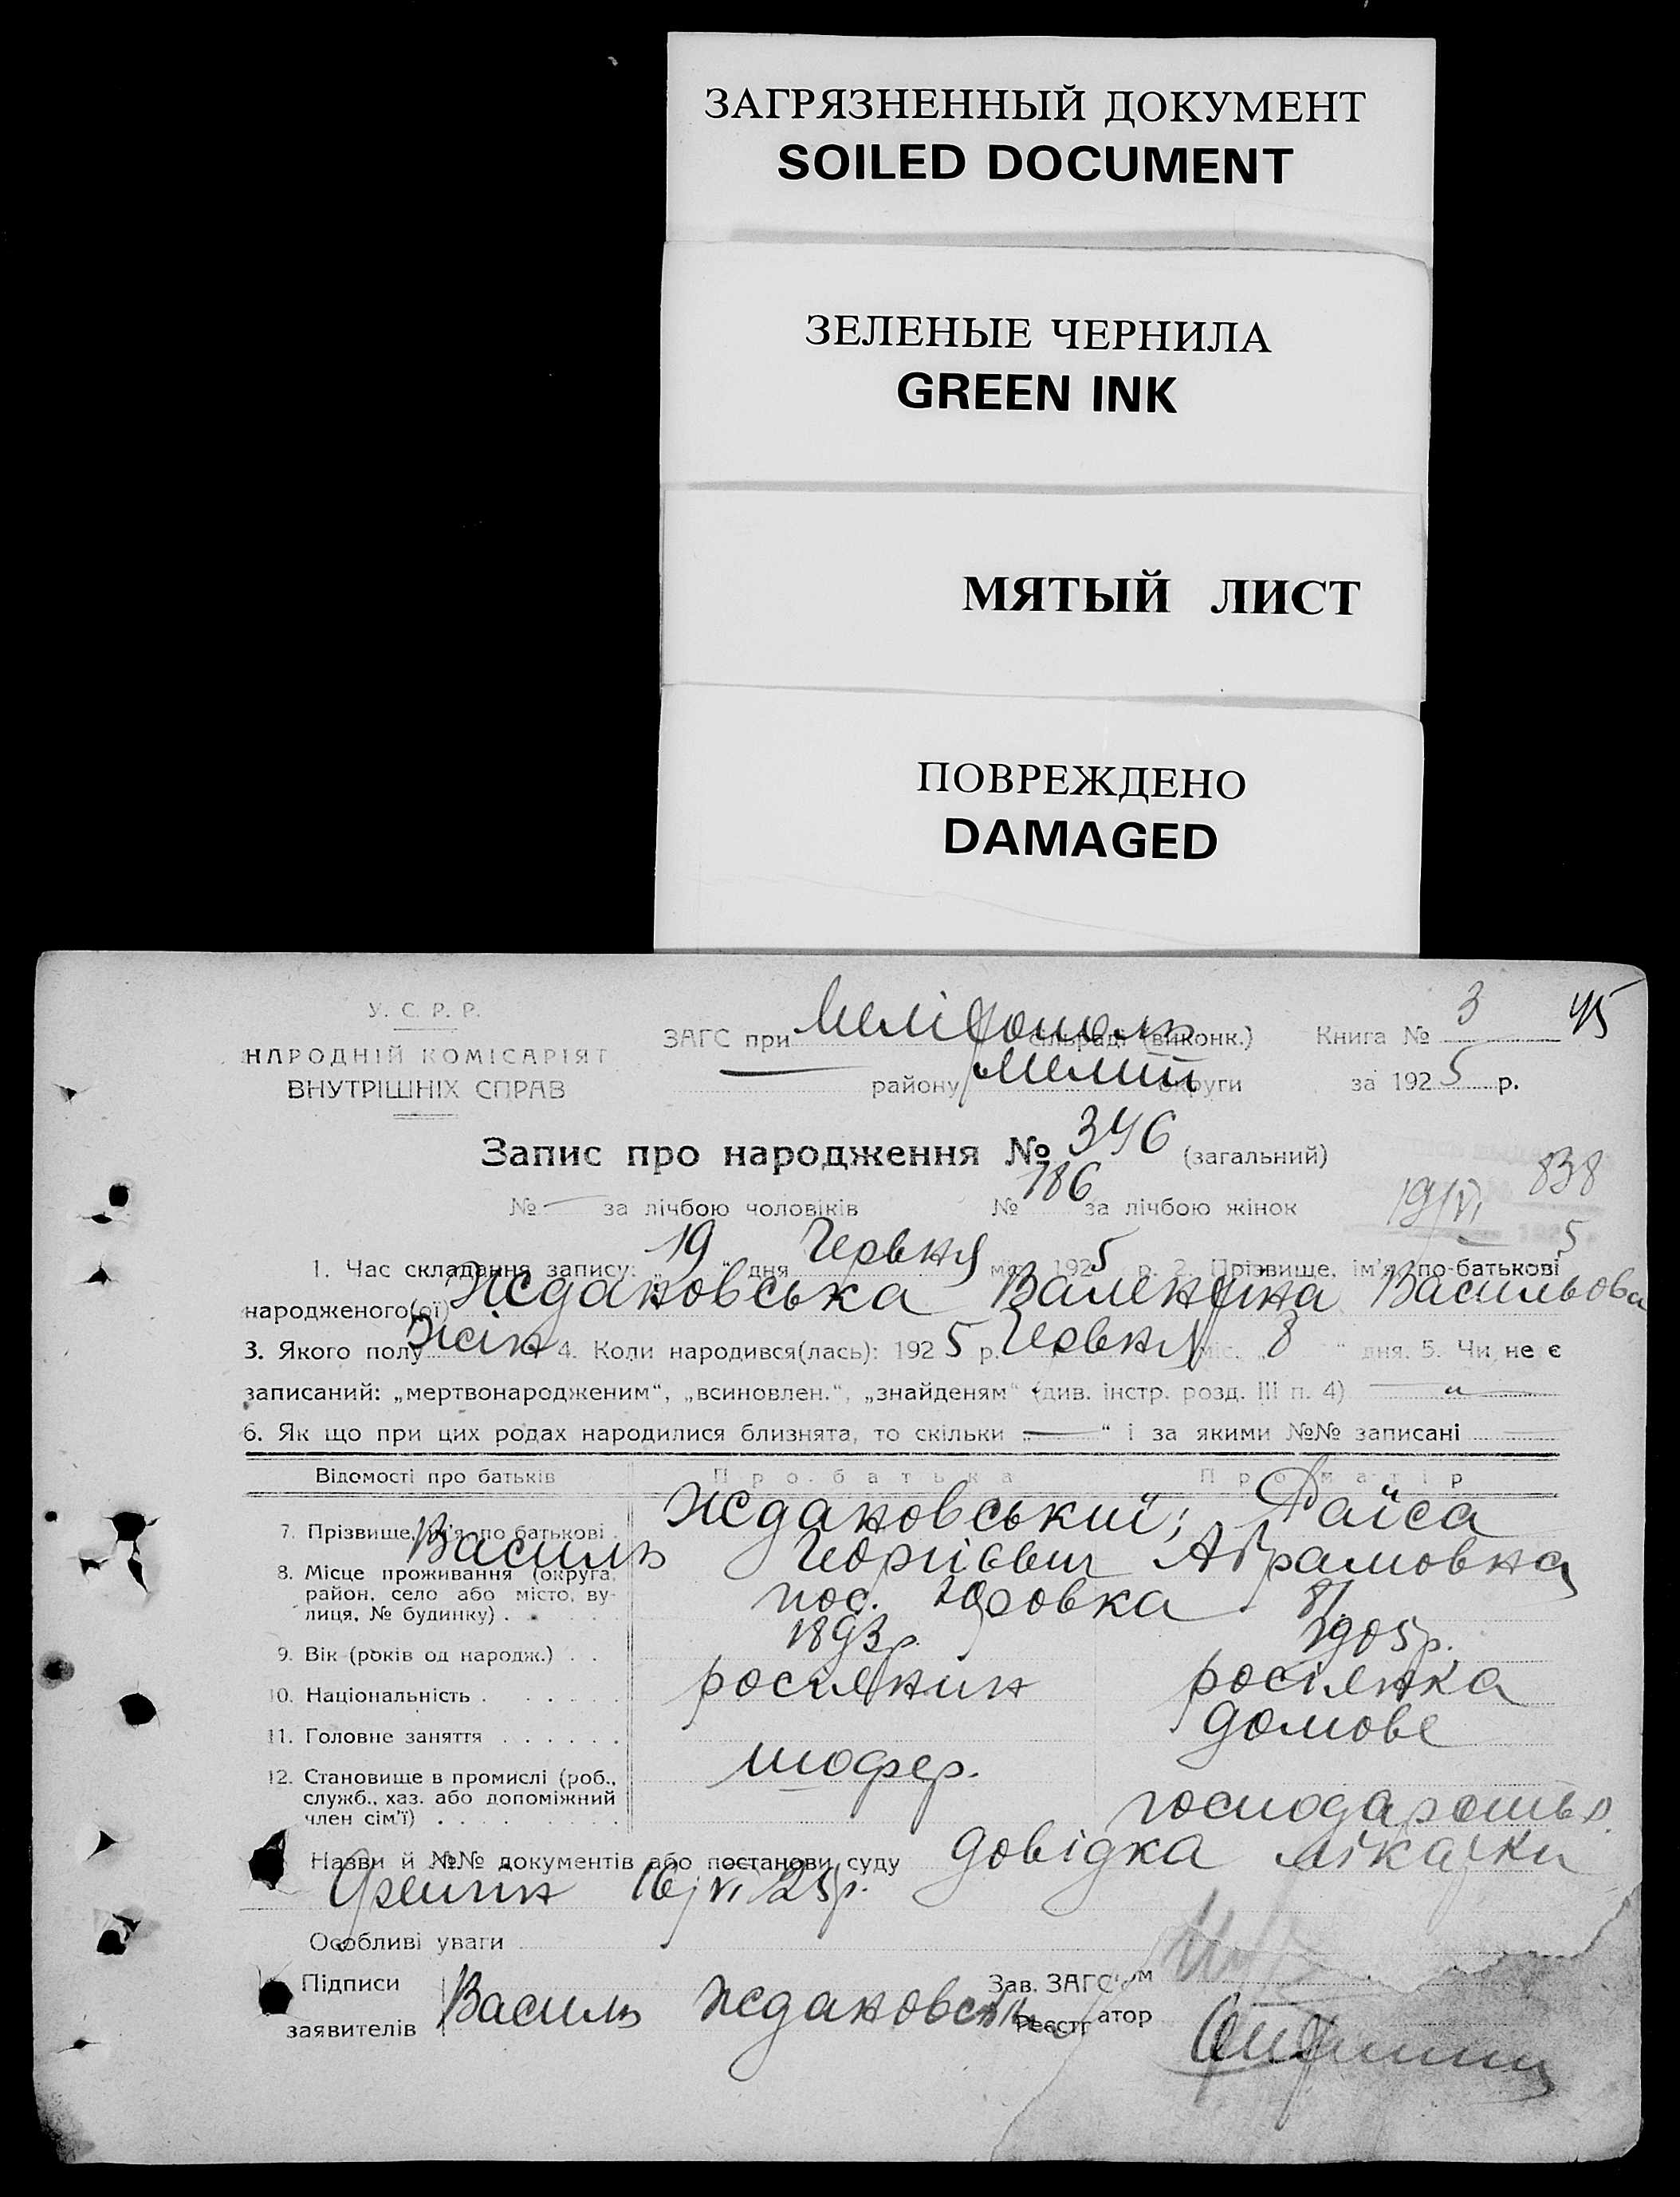 ЗАГРЯЗНЕННЫЙ ДОКУМЕНТ
SOILED DOCUMENT
ЗЕЛЕНЫЕ ЧЕРНИЛА
GREEN INK
МЯТЫЙ ЛИСТ
ПОВРЕЖДЕНО
DAMAGED
У. С. Р. Р.
НАРОДНІЙ КОМІСАРІЯТ
ВНУТРІШНІХ СПРАВ
ЗАГС при Мелітополь сільраді (виконк.) Книга № 3 45
району Меліт округи за 1925 р.
Запис про народження № 346 (загальний)
№ — за лічбою чоловіків № 186 за лічбою жінок 19/VI 838
5
1. Час складання запису: „19“ дня Червня міс. 1925 р. 2. Прізвище, ім'я, по-батькові
народженого(ої) Ждановська Валентина Васильовна
3. Якого полу жін 4. Коли народився(лась): 1925 р. Червня міс. „8“ дня. 5. Чи не є
записаний: „мертвонародженим“, „всиновлен.“, „знайденям“ (див. інстр. розд. III п. 4) — „ —
6. Як що при цих родах народилися близнята, то скільки „—“ і за якими №№ записані —
Відомості про батьків Про батька Про матір
7. Прізвище, ім'я, по батькові Ждановський; Раїса
Василь Георгієвич Абрамовна
8. Місце проживання (округа, район, село або місто, вулиця, № будинку) пос. Юровка 81.
9. Вік (років од народж.) 1893р. 1905р.
10. Національність росіянин росіянка
11. Головне заняття шофер. домове
12. Становище в промислі (роб., служб., хаз. або допоміжний член сім'ї) господарство.
Назви й №№ документів або постанови суду довідка лікарки
16/VI 25р.
Особливі уваги
Підписи Зав. ЗАГС'ом
заявителів Василь Ждановськ Реєстратор